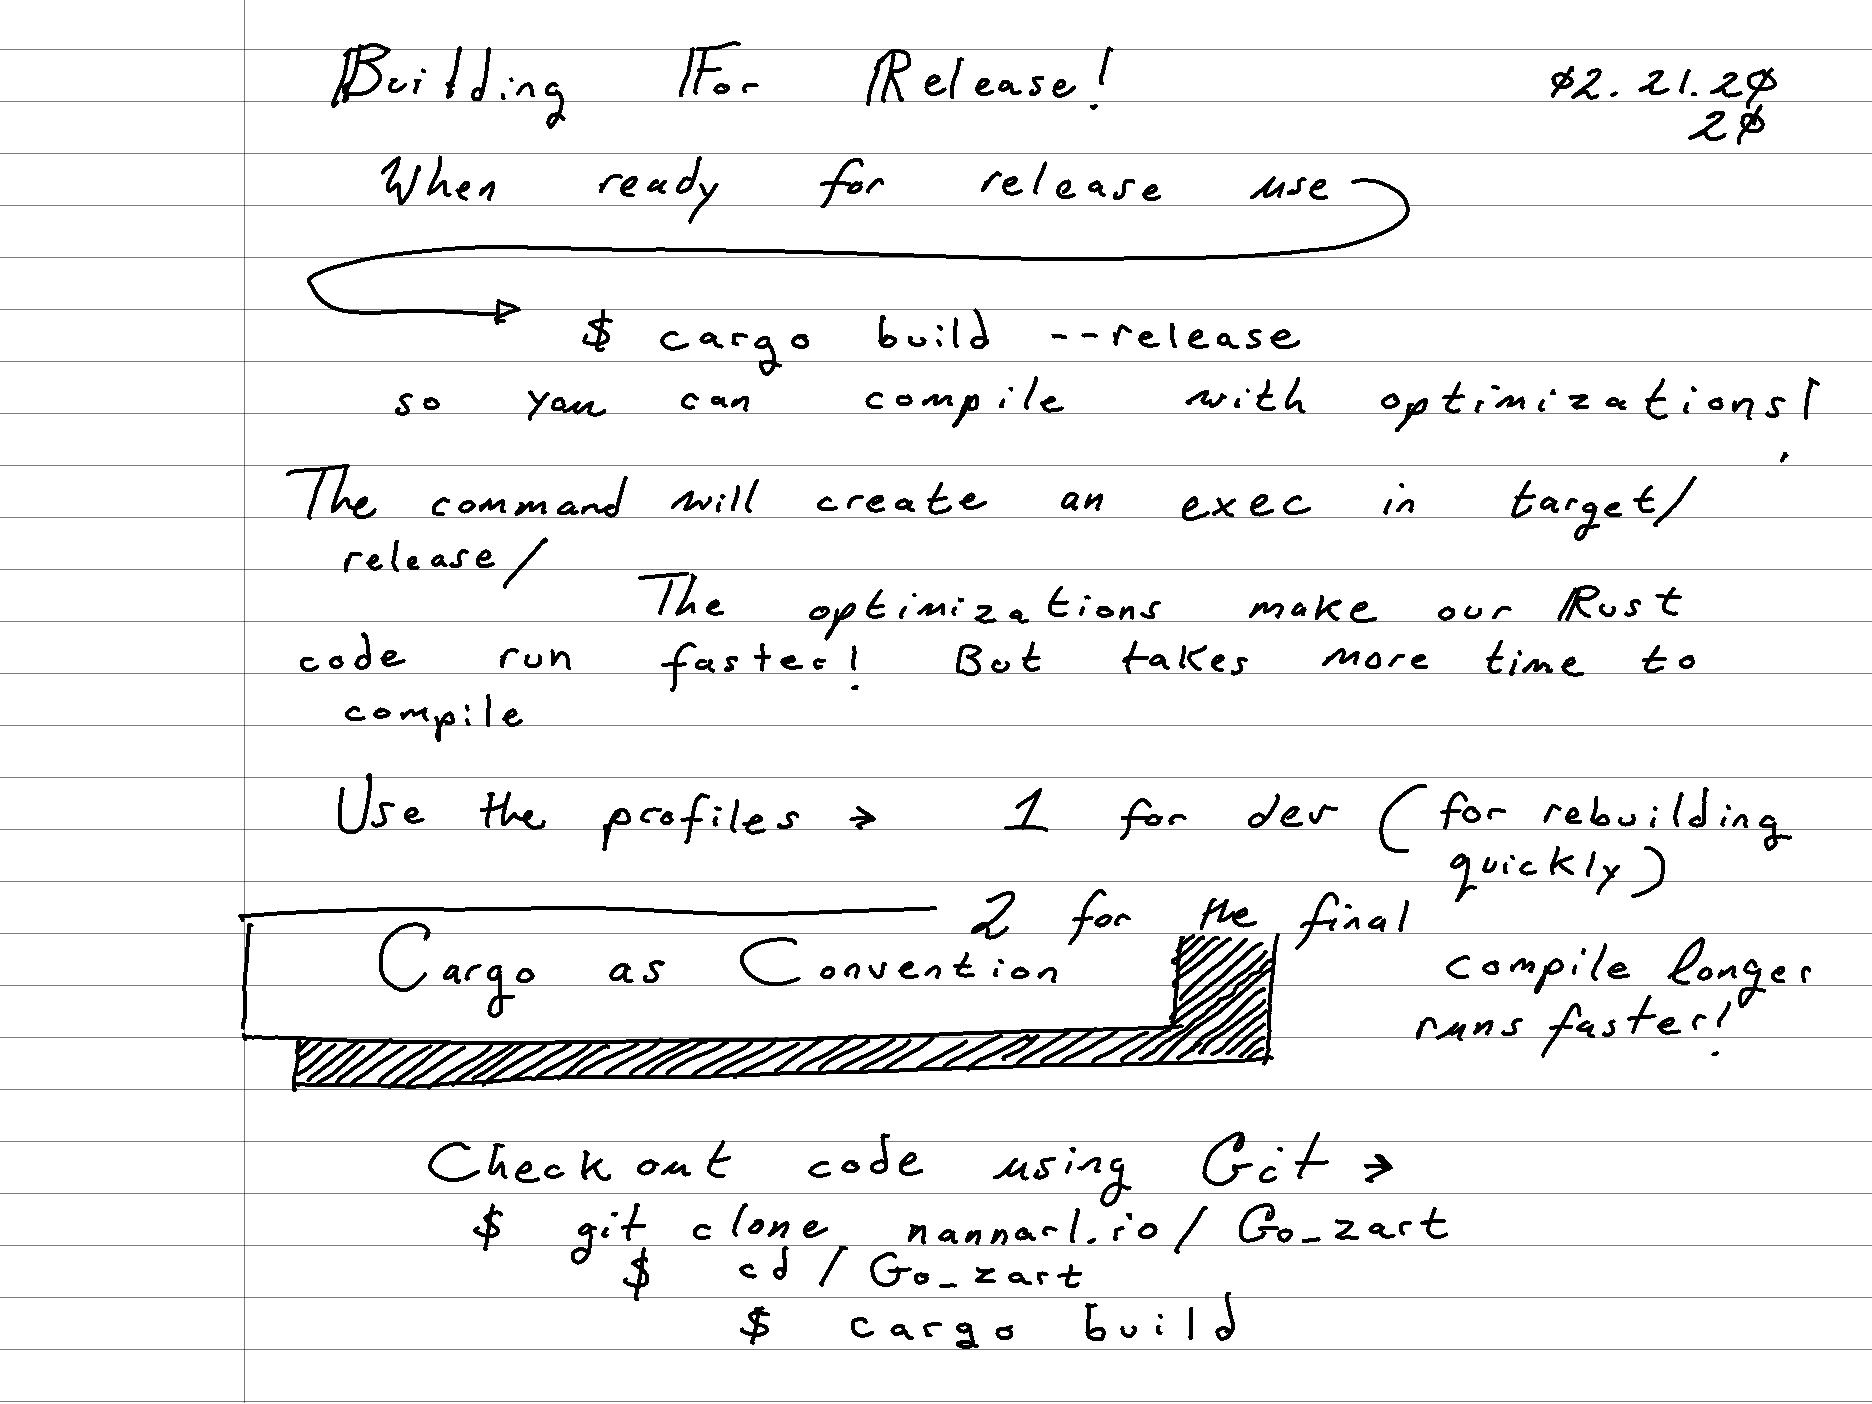 Building For Release!
02.21.20
20
When ready for release use
$ cargo build --release
so you can compile with optimizations!
The command will create an exec in target/
release/
The optimizations make our Rust
code run faster! But takes more time to
compile
Use the profiles → 1 for dev (for rebuilding
quickly)
2 for the final
compile longer
runs faster!
Cargo as Convention
Check out code using Git →
$ git clone nannarl.io/Go_zart
$ cd /Go_zart
$ cargo build